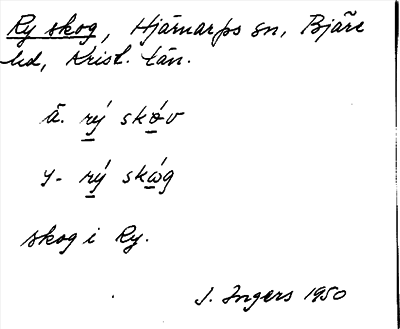 Ry skog, Hjärnarps sn, Bjäre
hd, Krist. län.
ä. rý skóv
y. rý skóg
skog i Ry.
J. Ingers 1950